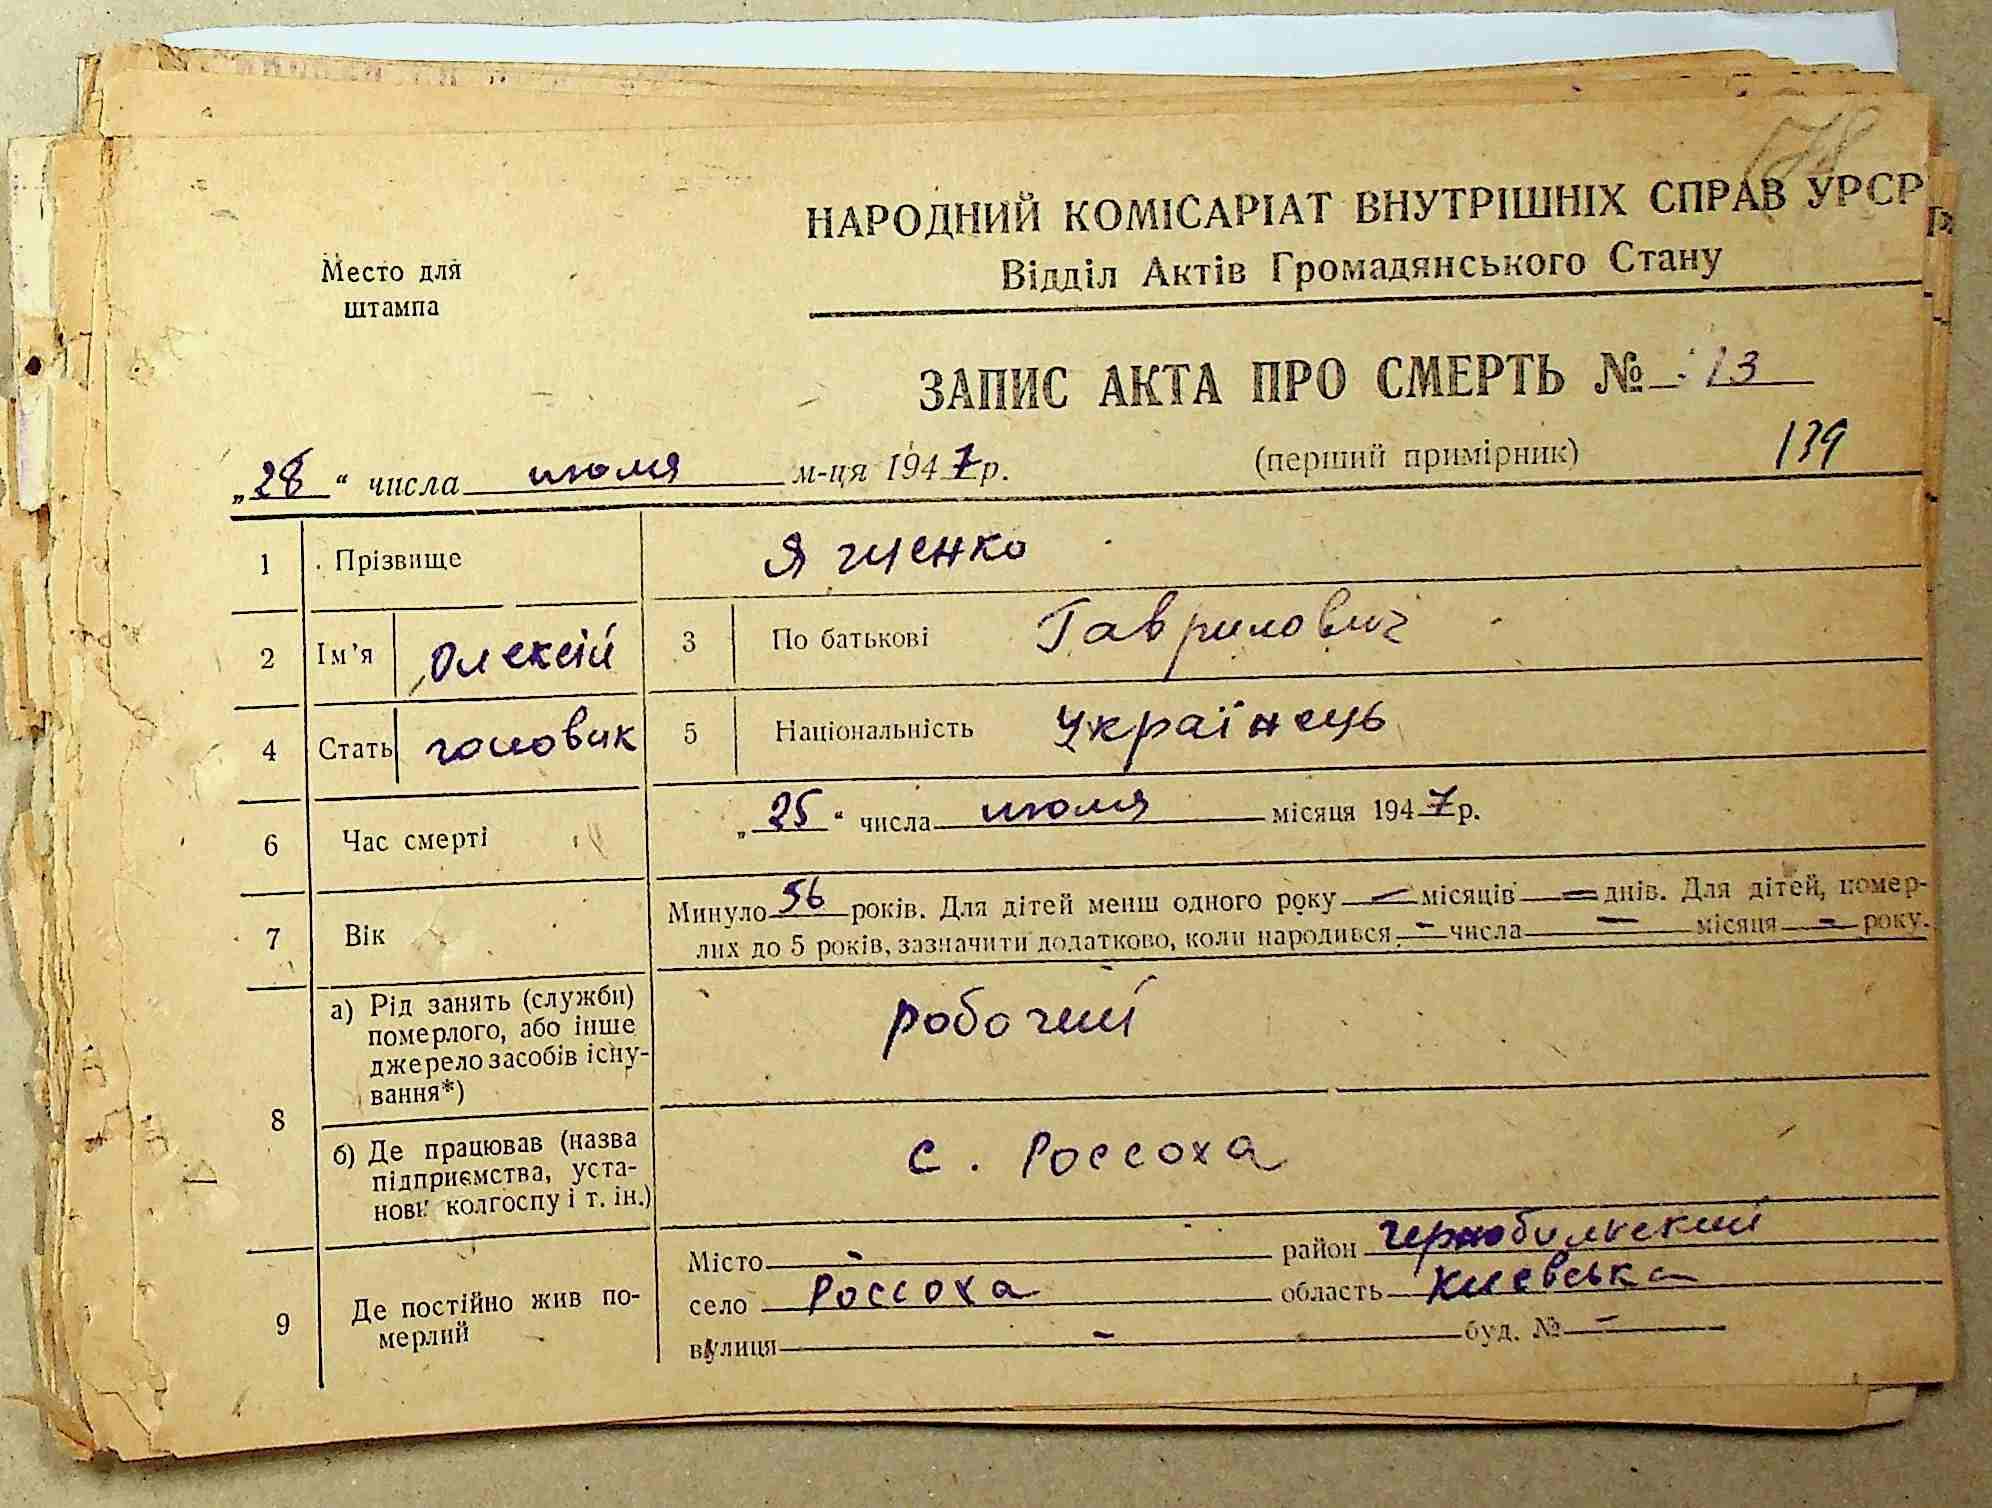 78
НАРОДНИЙ КОМІСАРІАТ ВНУТРІШНІХ СПРАВ УРСР
Відділ Актів Громадянського Стану
Место для
штампа
ЗАПИС АКТА ПРО СМЕРТЬ № 13
„28“ числа июля м-ця 1947 р. (перший примірник) 139
1 Прізвище Ященко
2 Ім’я Олексій 3 По батькові Гаврилович
4 Стать чоловик 5 Національність Українець
6 Час смерті „25“ числа июля місяця 1947 р.
7 Вік Минуло 56 років. Для дітей менш одного року — місяців — днів. Для дітей, помер-
лих до 5 років, зазначити додатково, коли народився - числа - місяця - року.
8 а) Рід занять (служби)
померлого, або інше
джерело засобів існу-
вання*) робочий
б) Де працював (назва
підприємства, уста-
нови колгоспу і т. ін.) с. Россоха
9 Де постійно жив по-
мерлий
Місто - район Чернобильский
село Россоха область Киевська
вулиця - буд. № -